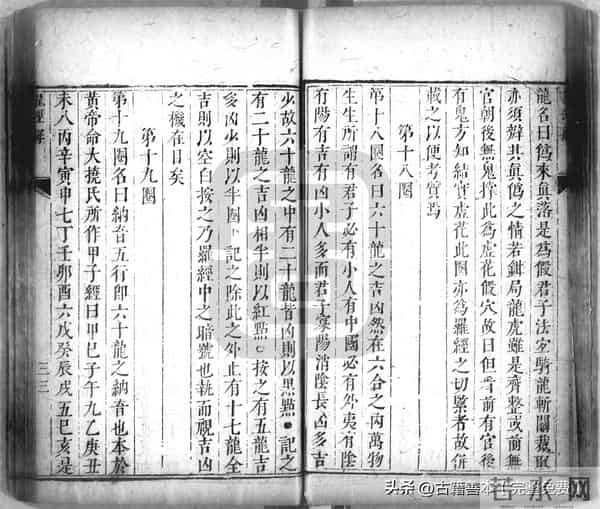 龍名曰僞來眞落是為假君子法宜騎龍斬關裁取
亦須辯其眞僞之情若鉗局龍虎雖是齊整或前無
官朝後無鬼撑此為虛花假穴故曰但看前有官後
有鬼方知結實虛花此圖亦為羅經之切緊者故併
載之以便考質焉
第十八圈
第十八圈名曰六十龍之吉凶然在六合之內萬物
生生所謂有君子必有小人有中國必有外夷有陰
有陽有吉有凶小人多而君子寡陽消陰長凶多吉
少故六十龍之中有二十龍皆凶則以黑點●記之
有二十龍之吉凶相半則以紅點按之有五龍吉
多凶少則以半圈記之除此之外止有十七龍全
吉則以空白按之乃羅經中之暗號也執而觀吉凶
之機在目矣
第十九圈
第十九圈名曰納音五行即六十龍之納音也本於
黃帝命大撓氏所作甲子經曰甲己子午九乙庚丑
未八丙辛寅申七丁壬卯酉六戊癸辰戌五巳亥是
三三
头条 @古籍善本